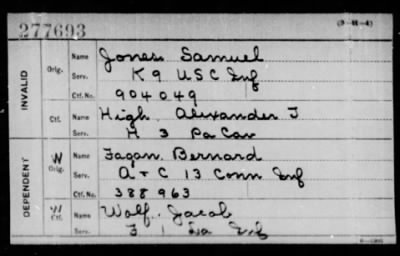 277693
(3-H-4)
INVALID
Orig.
Name Jones. Samuel
Serv. K 9 USC Inf
Ctf. No. 904049
Ctf.
Name High. Alexander J
Serv. H 3 Pa Cav
DEPENDENT
W
Orig.
Name Fagan. Bernard
Serv. A + C 13 Conn Inf
Ctf. No. 388963
W
Ctf.
Name Wolf. Jacob
Serv. F 1 La Inf